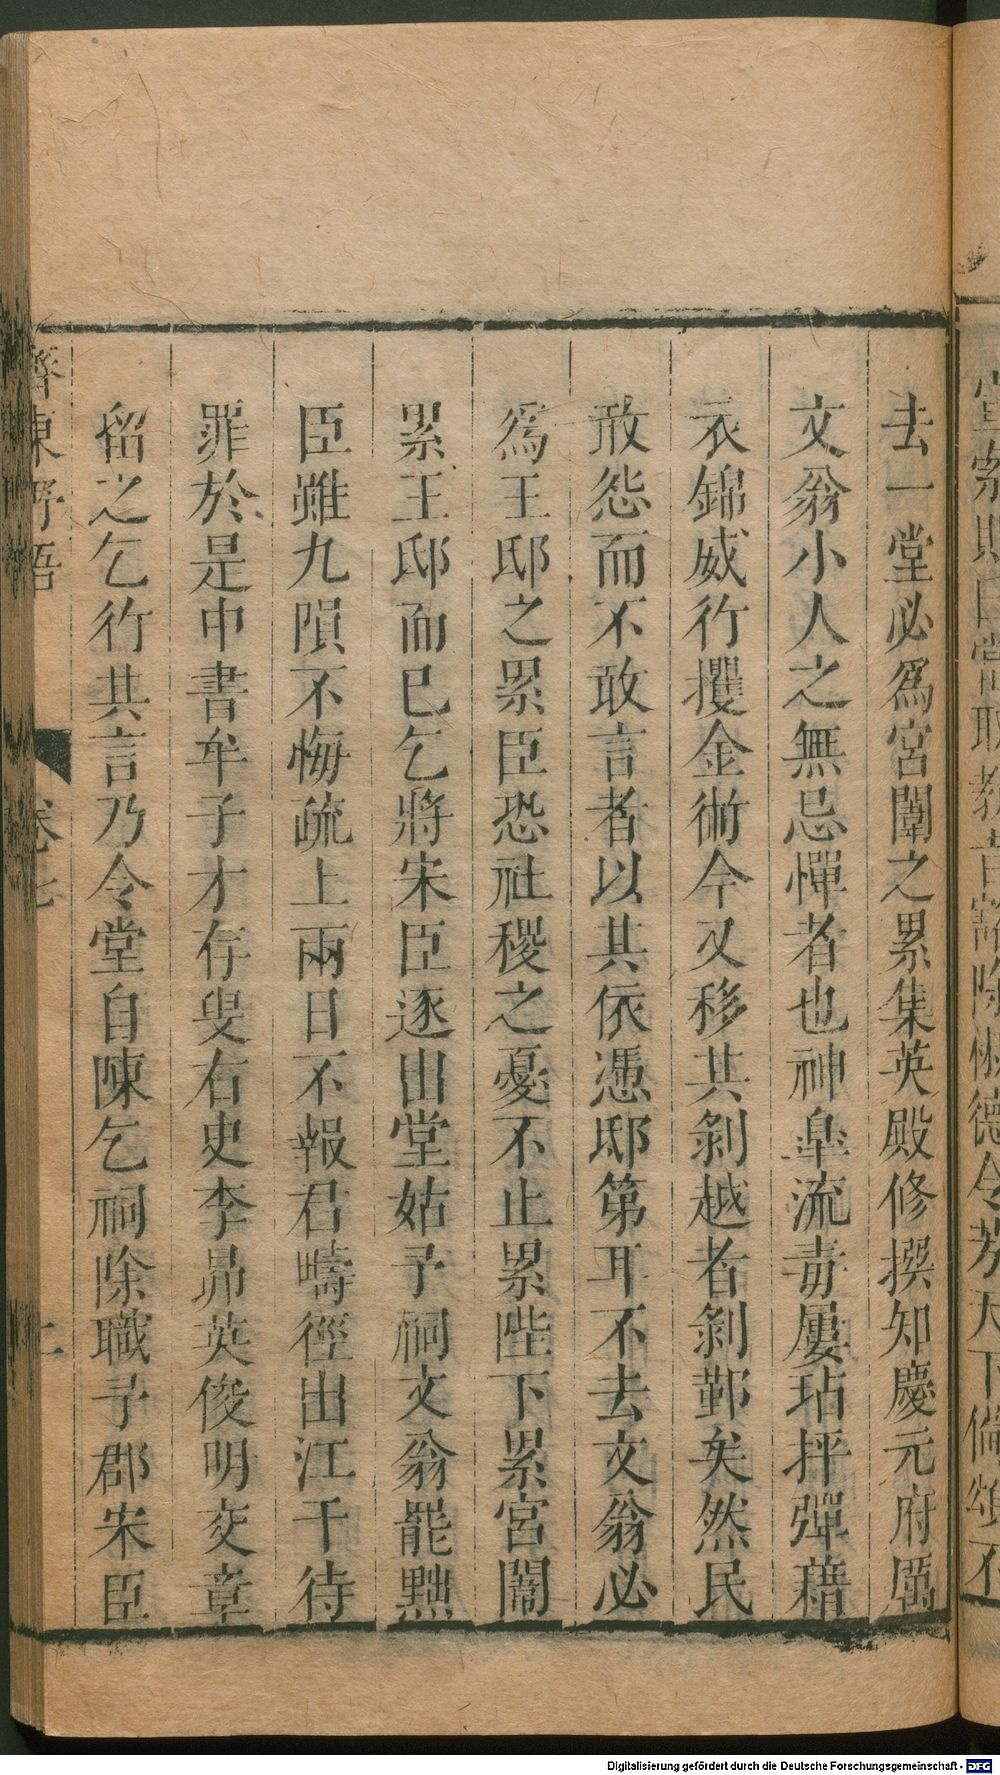 去一堂必爲宮闈之累集英殿修撰知慶元府厲
文翁小人之無忌憚者也神臯流毒屢玷抨彈藉
衣錦威行攫金術今又移其剝越者剝鄞矣然民
敢怨而不敢言者以其依憑邸第耳不去文翁必
爲王邸之累臣恐社稷之憂不止累陛下累宮闈
累王邸而已乞將宋臣逐出堂姑予祠文翁罷黜
臣雖九隕不悔疏上兩日不報君疇徑出江干待
罪於是中書牟子才存叟右史李昴英俊明交章
留之乞行其言乃令堂自陳乞祠除職予郡宋臣
齊東野語
卷七
Digitalisierung gefördert durch die Deutsche Forschungsgemeinschaft - DFG